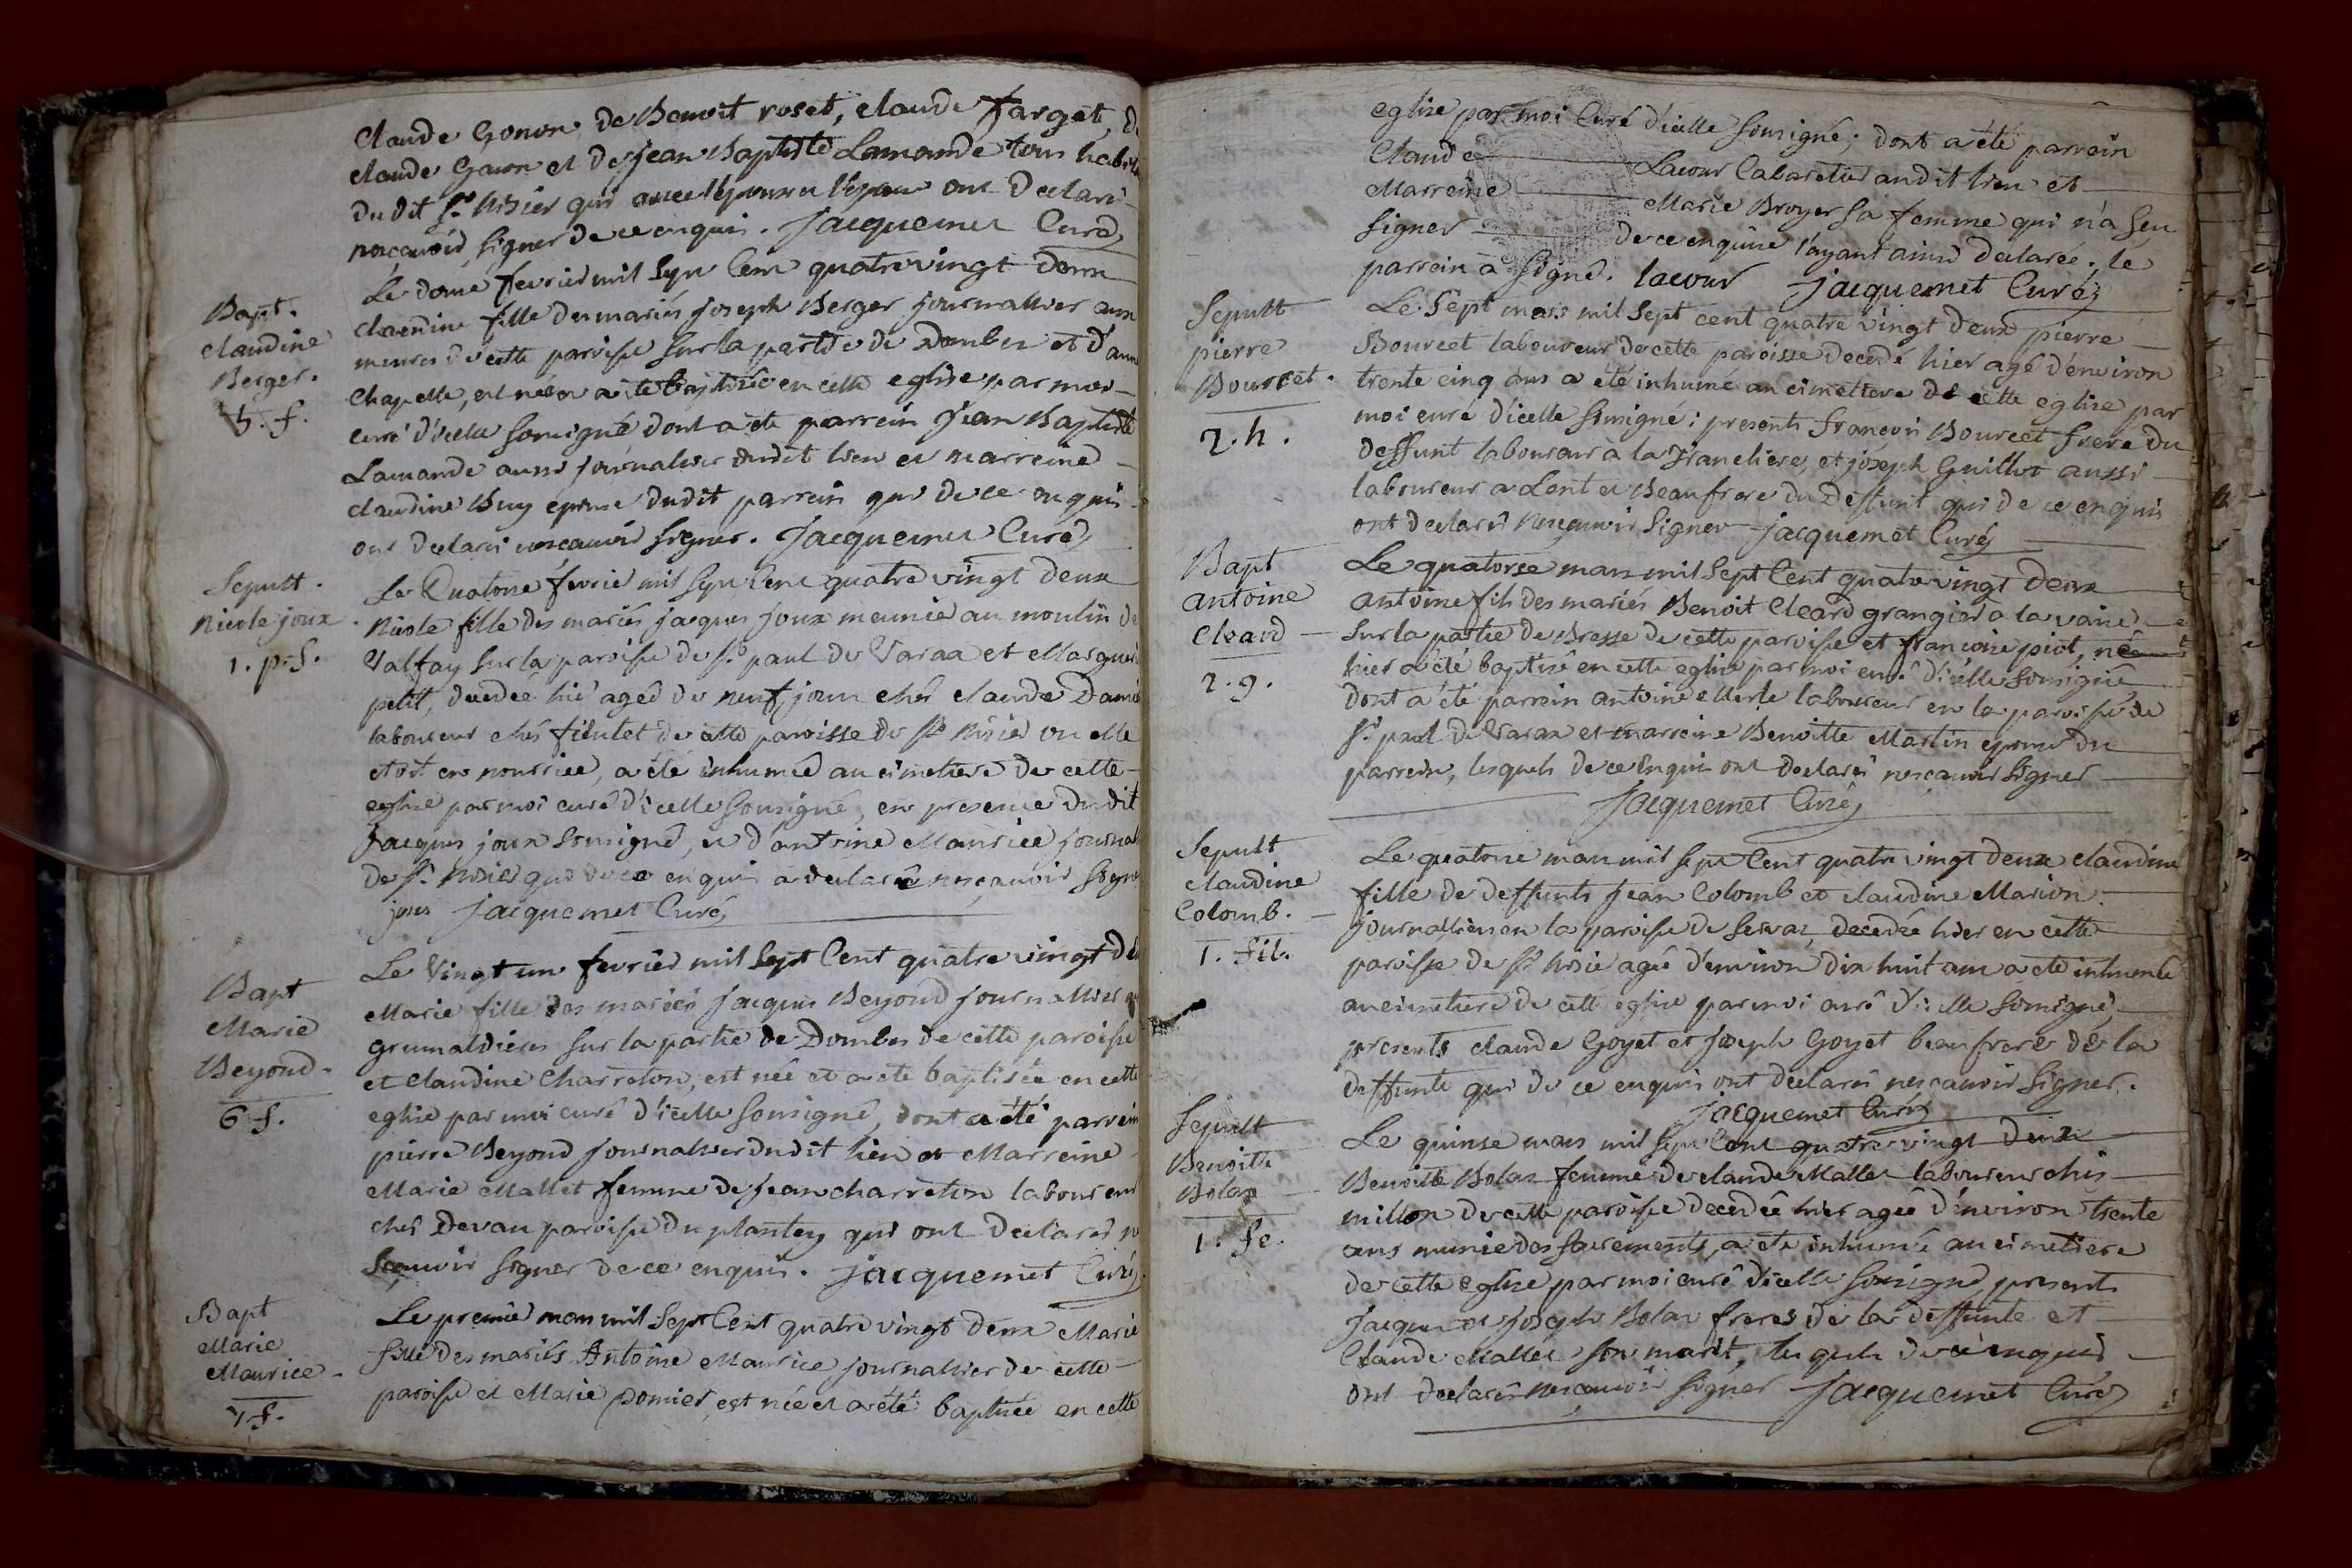 Claude Gonon de Benoit roset, claude farget, de
claude Gauon et de jean Baptiste Lamande tous habit
dudit st. Nisier qui avec l'epoux et l'epouse ont declaré
nesçavoir signer de ce enquis. Jacquemet Curé
Bapt.
claudine
Berger.
5. f.
Le douze fevrier mil sept Cent quatre vingt deux
claudine fille des mariés joseph Berger journallier aux
meures de cette paroisse sur la partie de Dombes et d'anne
Chapelle, est née et a été baptisée en cette eglise par moi
curé d'icelle sousigné dont a eté parrein Jean Baptiste
Lamande aussi journalier dudit lieu et marreine
claudine Buy epouse dudit parrein qui de ce enquis
ont declaré nescavoir signer. Jacquemet Curé
Sepult.
Nicole joux
1. p. f.
Le Quatorse fevrier mil sept Cent quatre vingt deux
Nicole fille des mariés jacques Joux meunier au moulin de
Valfay sur la paroisse de st. paul de Varax et Marguerite
petit, decedée hier agée de neuf jours chés claude Damé
laboureur chés filiulet de cette paroisse de st. Nisier ou elle
etoit en nourrice, a été inhumée au cimetiere de cette
eglise par moi curé d'icelle sousigné, en presence dudit
Jacques joux sousigné, et d'antoine Maurice journal
de st. Nisier qui de ce enquis a declaré nesçavoir signer
joux Jacquemet Curé
Bapt
Marie
Beyond.
6 f.
Le Vingt un fevrier mil sept Cent quatre vingt de
Marie fille des mariés Jacques Beyond journallier
grumaldieres sur la partie de Dombes de cette paroisse
et Claudine Charreton, est née et a été baptisée en cette
eglise par moi curé d'icelle sousigné, dont a été parrein
pierre Beyond journallier dudit lieu et Marreine
Marie Mallet femme de jean charreton laboureur
chés Devau paroisse du plantey qui ont declaré ne
Sçavoir signer de ce enquis. Jacquemet Curé
Bapt
Marie
Maurice
7 f.
Le premier mars mil Sept Cent quatre vingt deux Marie
fille des mariés Antoine Maurice journallier de cette
paroisse et Marie pomier, est née et a été baptisée en cette
eglise par moi Curé d'icelle sousigné; dont a été parrein
Claude Lacour Cabaretier audit lieu et
Marreine Marie Broyer sa femme qui n'a seu
signer de ce enquise l'ayant ainsi declarée. le
parrein a signé. lacour jacquemet Curé
Sepult
pierre
Bourcet.
2. h.
Le Sept mars mil Sept cent quatre vingt deux pierre
Bourcet laboureur de cette paroisse decedé hier agé d'environ
trente cinq ans a été inhumé au cimettere de cette eglise par
moi curé d'icelle sousigné; presents françois Bourcet frere du
deffunt laboureur à la Franeliere, et joseph Guillot aussi
laboureur a Lent et Beaufrere du Deffunt qui de ce enquis
ont declaré Nesçavoir Signer jacquemet Curé
Bapt
antoine
Cleard
2. g.
Le quatorse mars mil Sept Cent quatre vingt deux
antoine fils des mariés Benoit Cleard grangier a la vaire
sur la partie de Bresse de cette paroisse et françoise piot, né
hier a été baptisé en cette eglise par moi curé d'icelle sousigné
dont a été parrein antoine Merle laboureur en la paroisse de
st. paul de Varax et marreine Benoitte Martin epouse du
parrein, lesquels de ce enquis ont declaré nescavoir signer
Jacquemet Curé
Sepult
claudine
Colomb.
1. fil.
Le quatorse mars mil sept Cent quatre vingt deux claudine
fille de deffunts Jean Colomb et claudine Marion
journalliers en la paroisse de Servas, decedée hier en cette
paroisse de st. Nisier agée d'environ dix huit ans a été inhumée
au cimetiere de cette eglise par moi curé d'icelle sousigné,
presents claude Goyet et joseph Goyet beaufrere de la
deffunte qui de ce enquis ont declaré nescavoir signer.
jacquemet Curé
Sepult
Benoitte
Bolax
1. fe.
Le quinse mars mil sept Cent quatre vingt deux
Benoitte Bolax femme de claude Mallet laboureur chés
millon de cette paroisse decedée hier agée d'environ trente
ans munie des sacrements, a été inhumée au cimetiere
de cette eglise par moi curé d'icelle sousigné, presents
Jacques et joseph Bolax freres de la deffunte et
Claude Mallet son marit, lesquels de ce enquis
ont declaré nesçavoir signer Jacquemet Curé